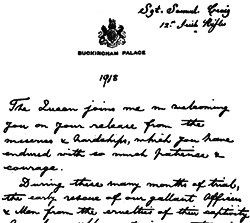 Sgt. Samuel Craig
12th Irish Rifles
BUCKINGHAM PALACE
1918
The Queen joins me in welcoming
you on your release from the
miseries & hardships, which you have
endured with so much patience &
courage.
During these many months of trial,
the early rescue of our gallant Officers
& Men from the cruelties of their captivity